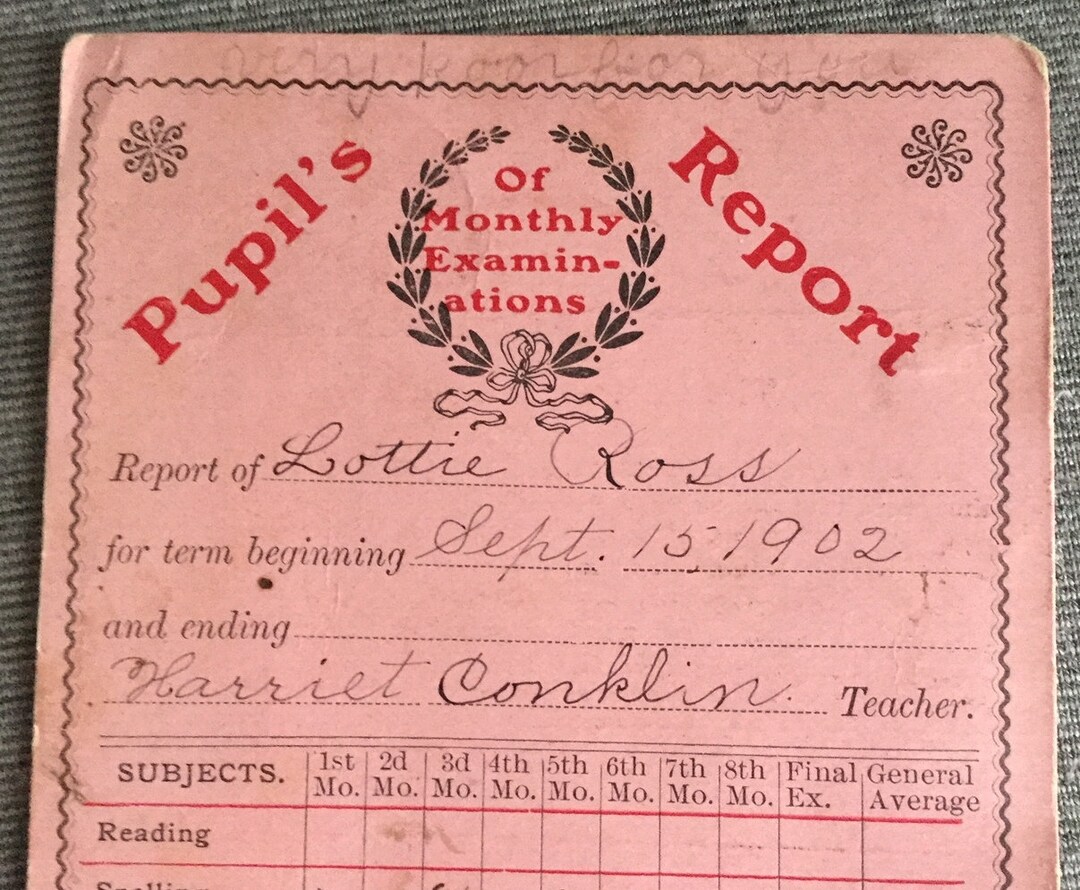 very poor for you
Pupil's Report
Of
Monthly
Examin-
ations
Report of Lottie Ross
for term beginning Sept. 15 1902
and ending
Harriet Conklin. Teacher.
SUBJECTS. 1st Mo. 2d Mo. 3d Mo. 4th Mo. 5th Mo. 6th Mo. 7th Mo. 8th Mo. Final Ex. General Average
Reading
Spelling